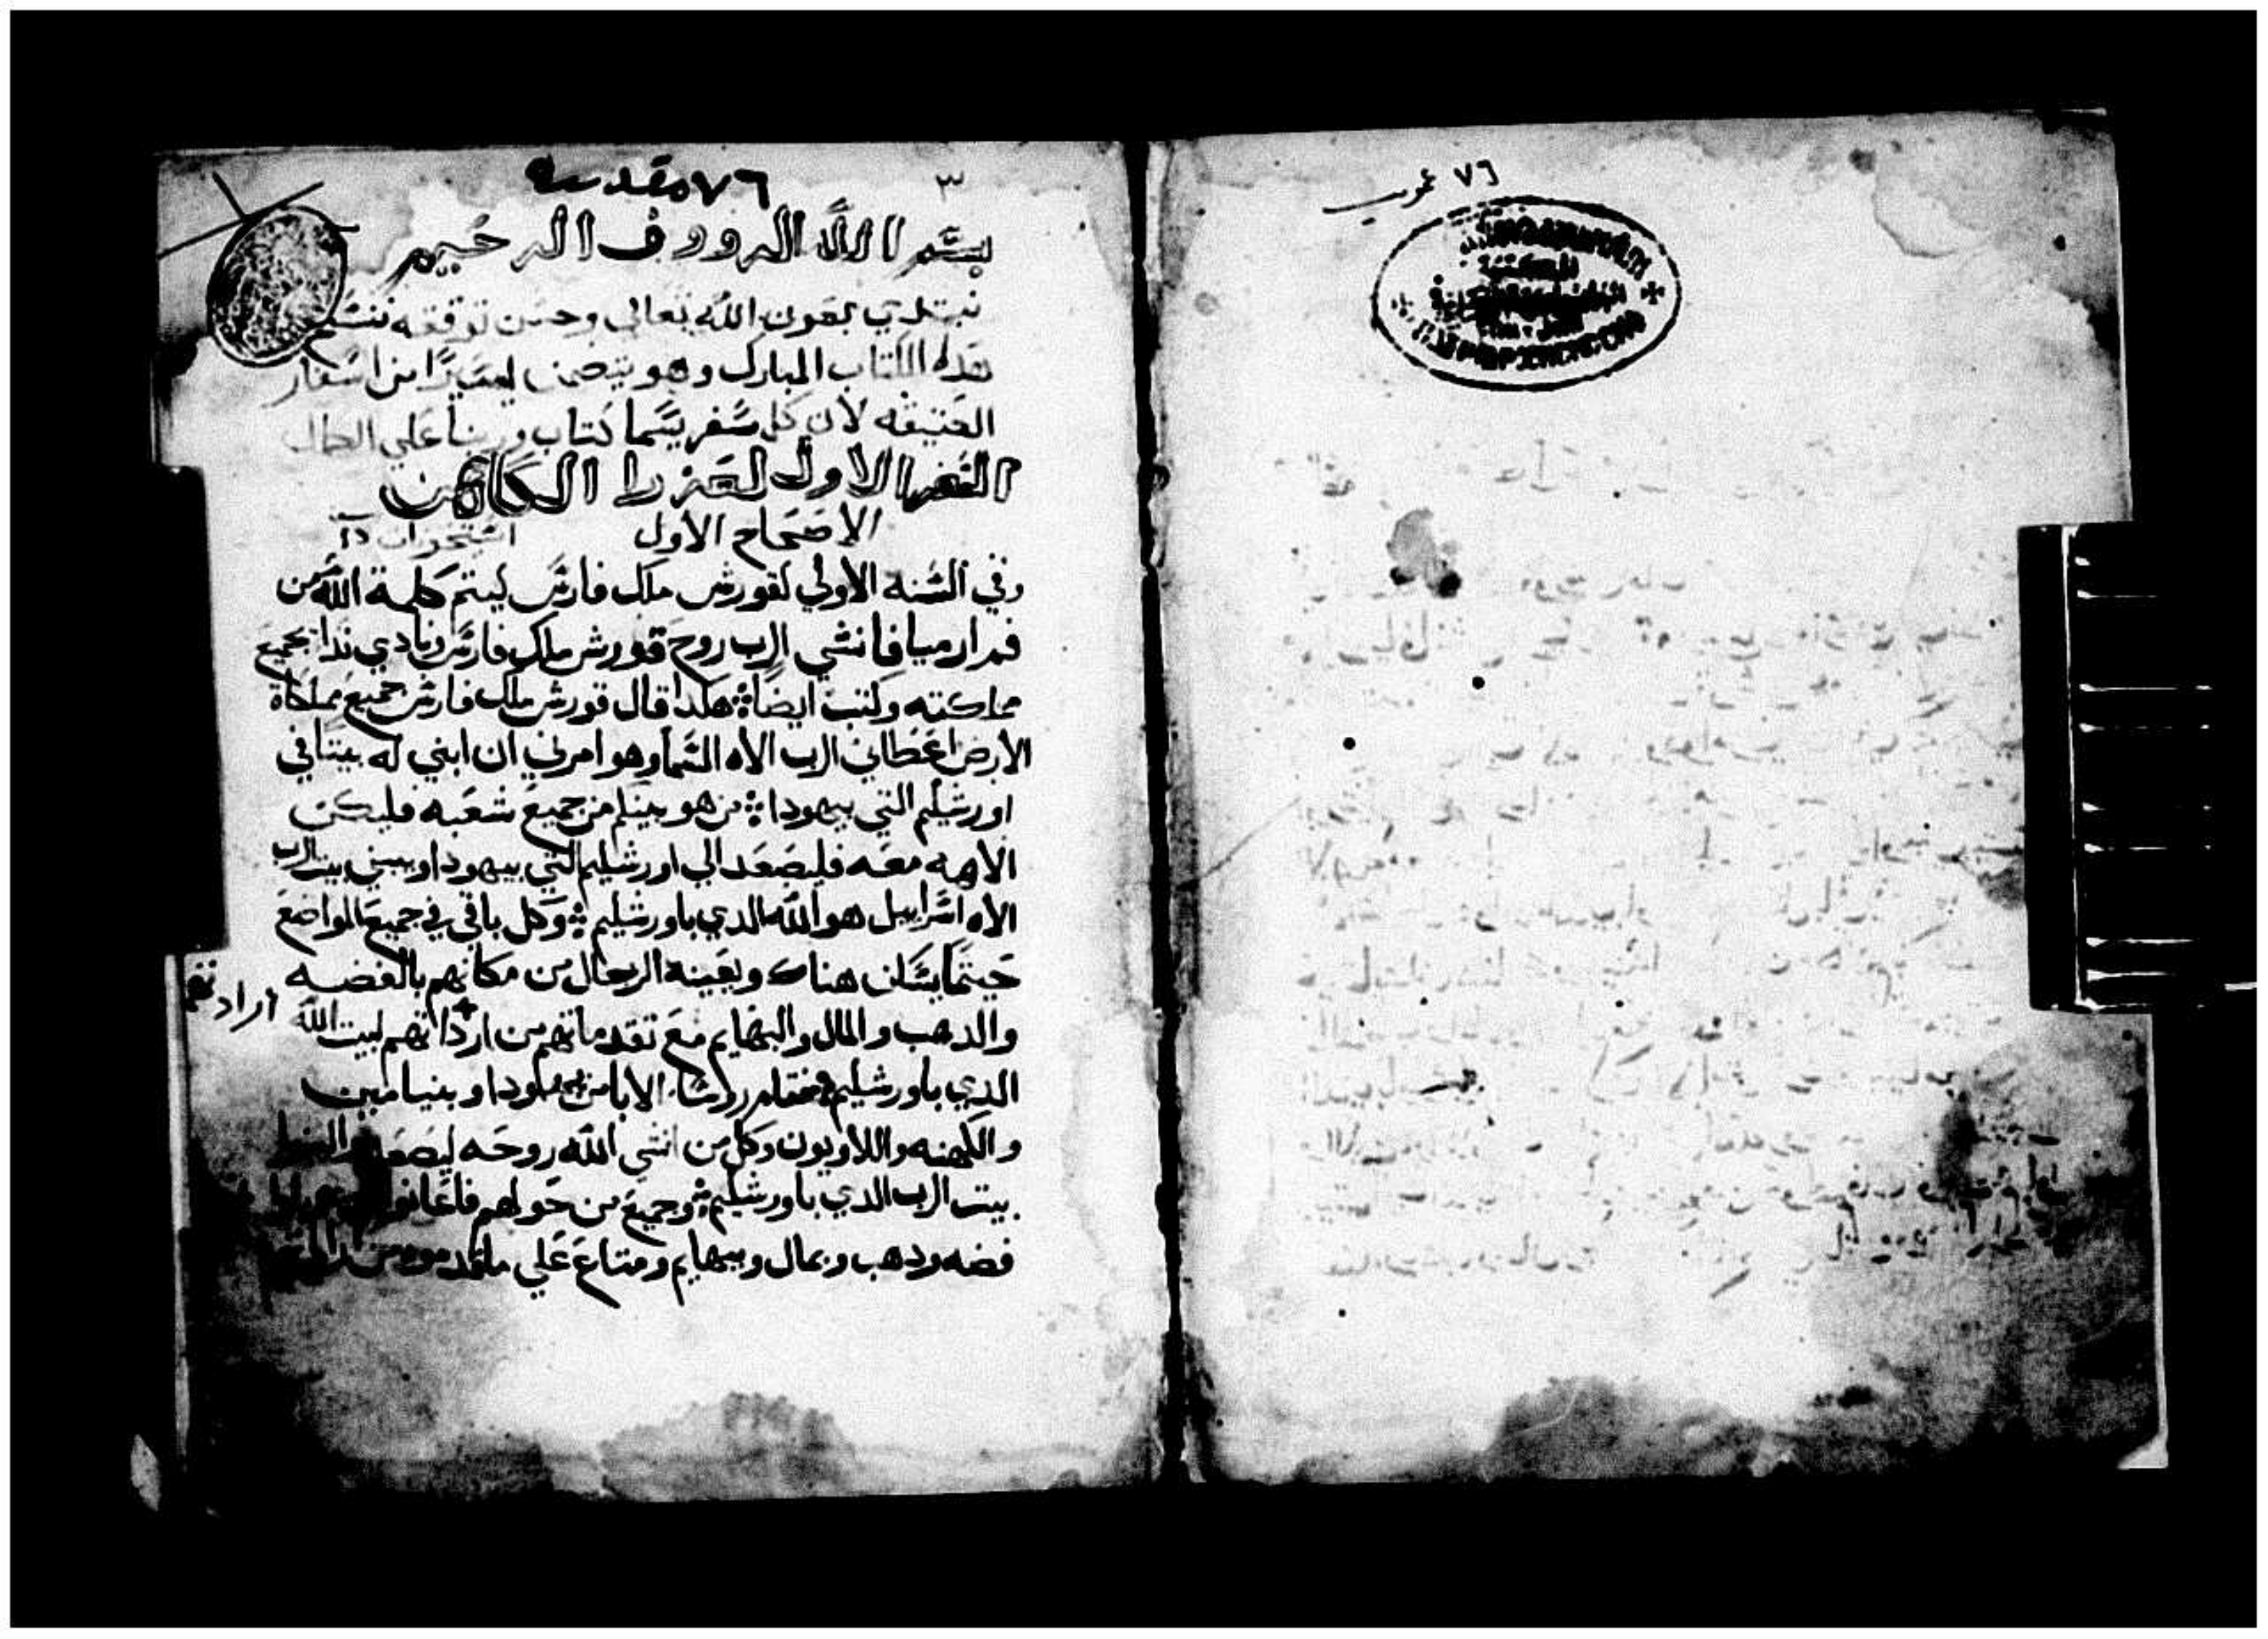 ٧٦ عمومي
المكتبة
٣
٧٦ مقدسة
بسم الله الرووف الرحيم
نبتدي بعون الله تعالي وحسن توفقه ننسخ
هذه الكتاب المبارك وهو يتضمن من اسفار
العتيقه لان كل سفر يسما كتاب
السفر الاول لعزرا الكاهن
الاصحاح الاول
وفي السنه الاولي لقورش ملك فارس ليتم كلمة الله من
فم ارميا فانشي الرب روح قورش ملك فارس ونادي ندا بجميع
مملكته وكتب ايضاً هكذا قال قورش ملك فارس جميع مملكاة
الارض اعطاني الرب الاه السما وهو امرني ان ابني له بيتاً في
اورشليم التي بيهودا من هو بينكم من جميع شعبه فليكن
الاهه معه فليصعد الي اورشليم التي بيهودا ويبني بيت الرب
الاه اسراييل هو الله الدي باورشليم وكل باقي في جميع المواضع
حيتما يسكن هناك ويعينه الرجال من مكانهم بالفضه
والدهب والمال والبهايم مع تقدماتهم من ارداتهم لبيت الله
اراد تهم
الدي باورشليم فقام روسا الابا من يهودا وبنيامين
والكهنه واللاويون وكل من انشي الله روحه ليصعد
بيت الرب الدي باورشليم وجميع من حولهم فاعانوا
فضه ودهب وبمال وبيهايم ومتاع علي ما